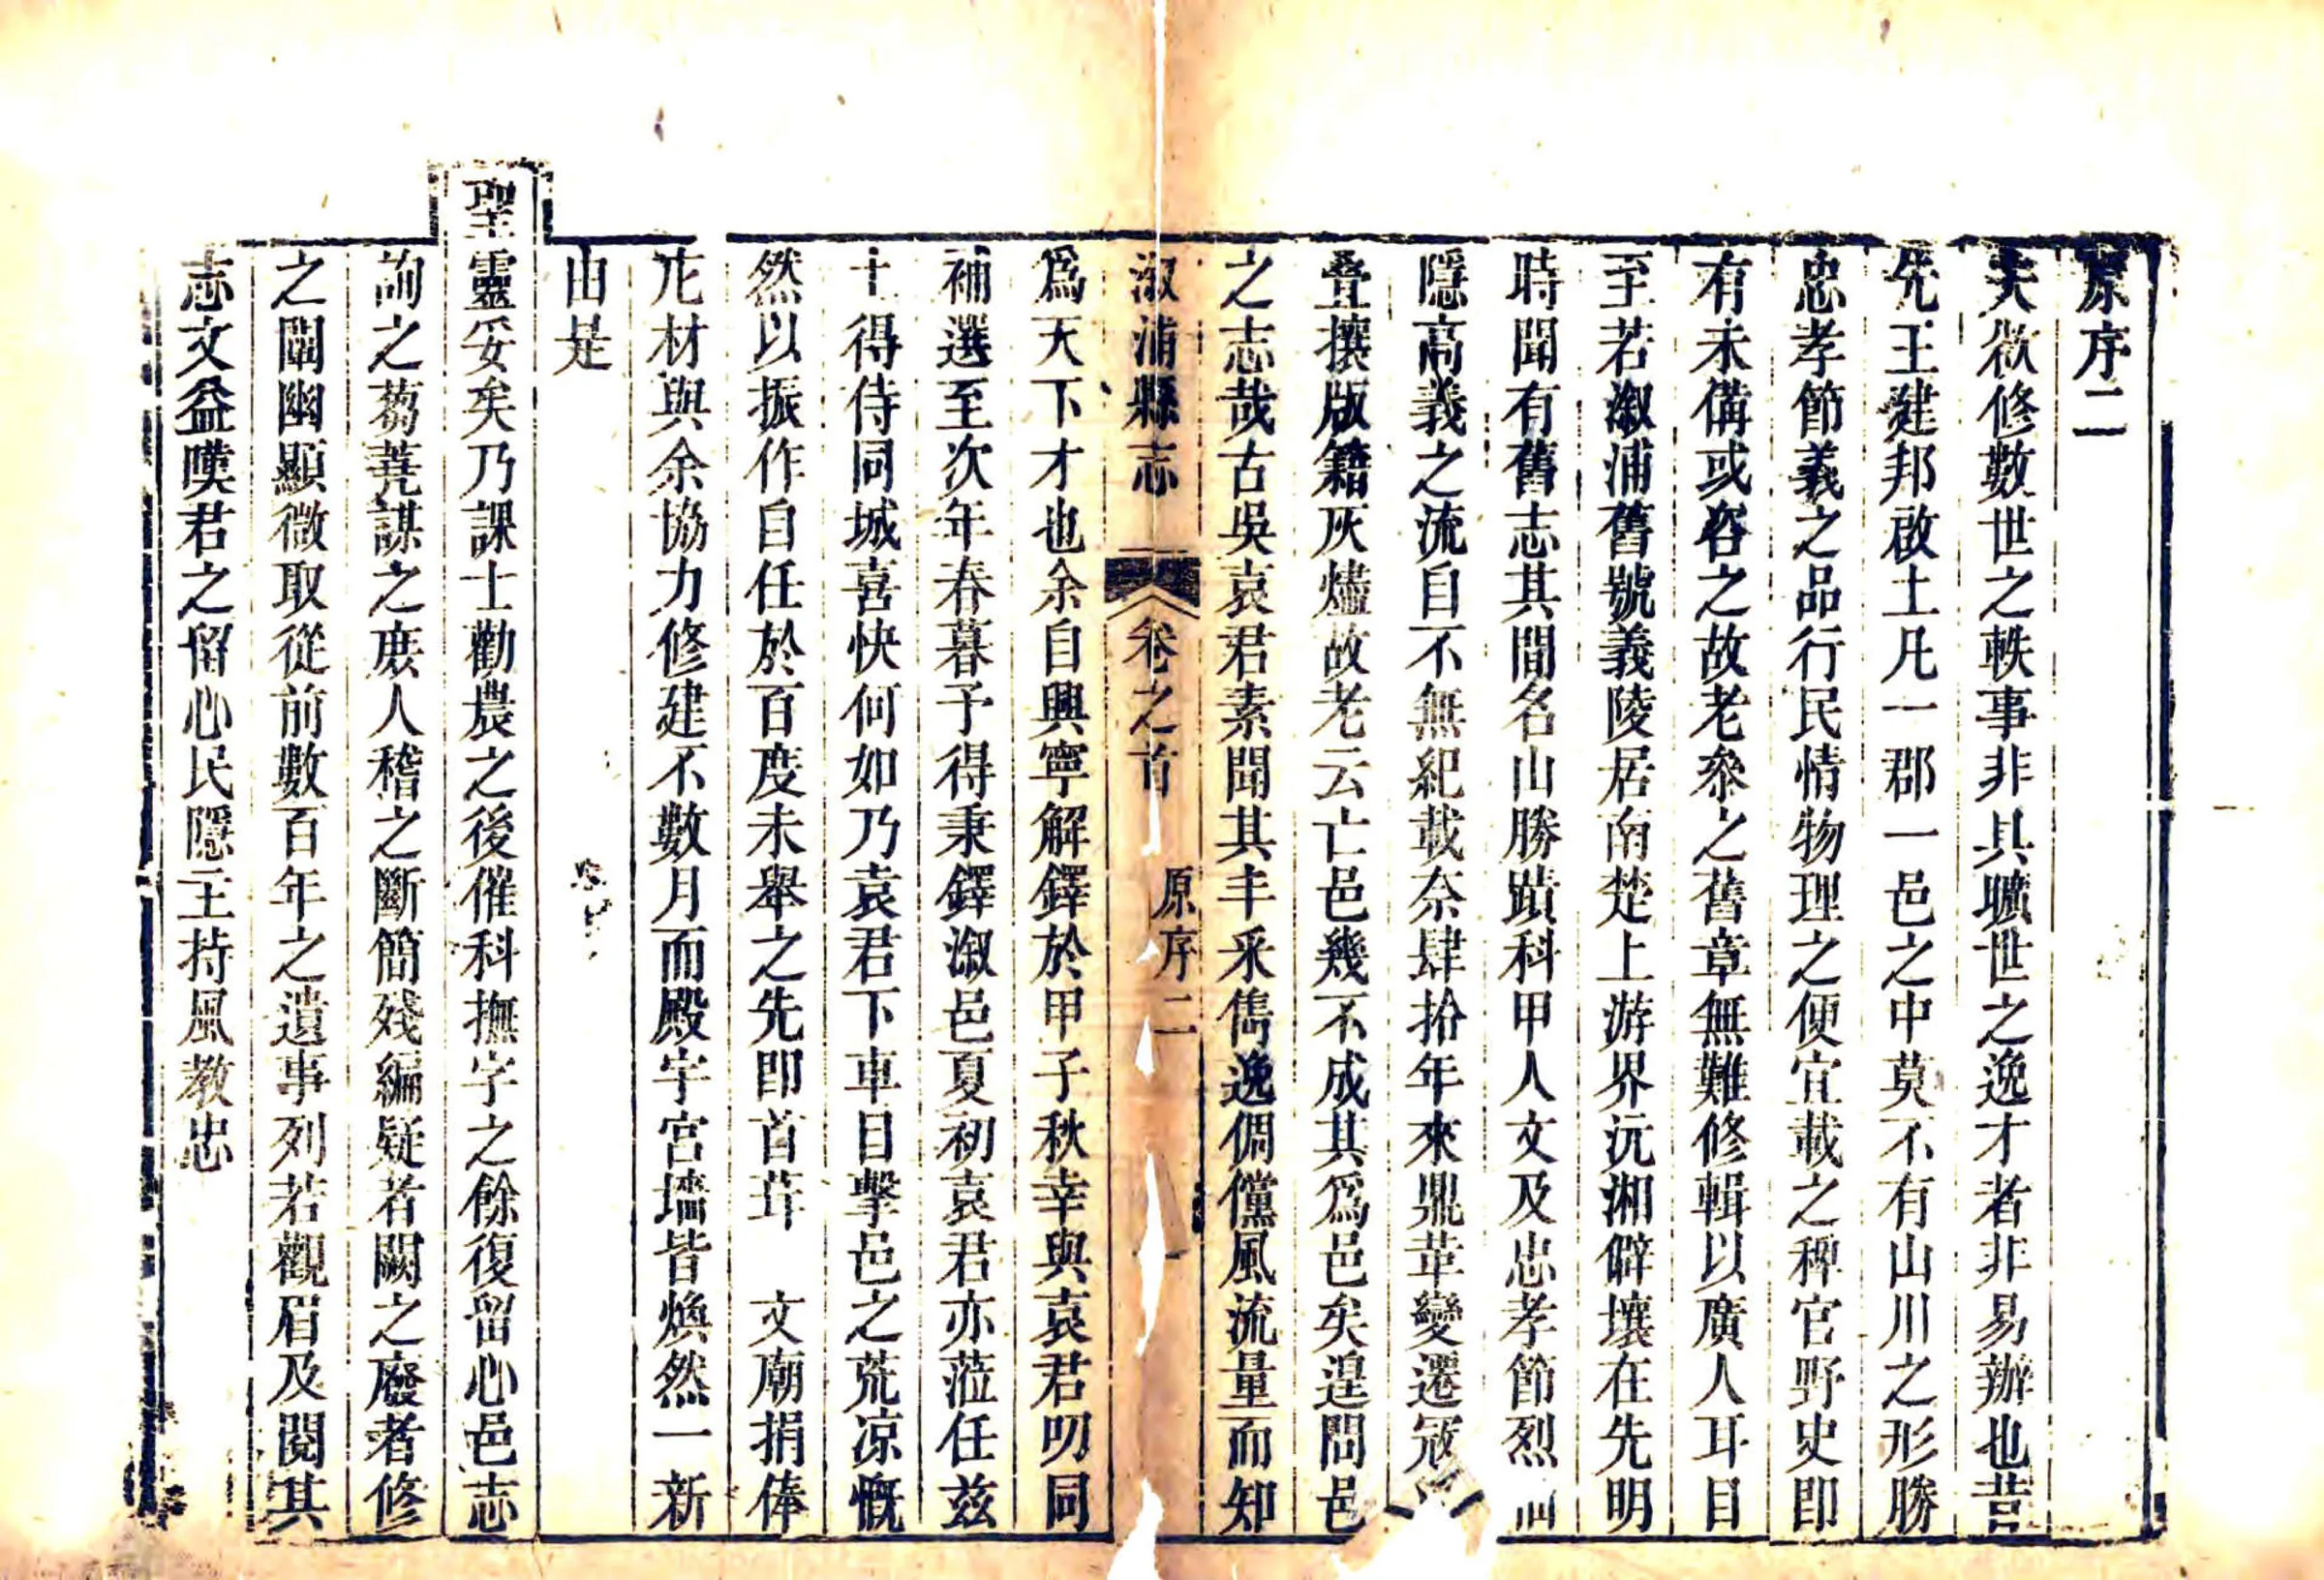 原序二
夫欲修數世之軼事非具曠世之逸才者非易辦也昔
先王建邦啟土凡一郡一邑之中莫不有山川之形勝
忠孝節義之品行民情物理之便宜載之稗官野史即
有未備或咨之故老叅之舊章無難修輯以廣人耳目
至若溆浦舊號義陵居南楚上游界沅湘僻壤在先明
時聞有舊志其間名山勝蹟科甲人文及忠孝節烈
隱高義之流自不無紀載奈肆拾年來鼎革變遷冦
疊攘版籍灰燼故老云亡邑幾不成其爲邑矣遑問邑
之志哉古吳袁君素聞其丰采雋逸倜儻風流量而知
溆浦縣志 卷之首 原序二
爲天下才也余自興寧解鐸於甲子秋幸與袁君叨同
補選至次年春暮予得秉鐸溆邑夏初袁君亦蒞任兹
土得侍同城喜快何如乃袁君下車目擊邑之荒凉慨
然以振作自任於百度未舉之先即首葺 文廟捐俸
庀材與余協力修建不數月而殿宇宮墻皆煥然一新
由是
聖靈妥矣乃課士勸農之後催科撫字之餘復留心邑志
詢之蒭蕘謀之庶人稽之斷簡殘編疑者闕之廢者修
之闡幽顯微取從前數百年之遺事列若觀眉及閱其
志文益嘆君之留心民隱主持風教忠